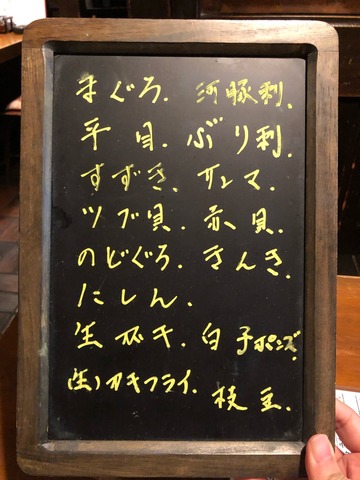 まぐろ. 河豚刺.
平目. ぶり刺.
すずき. サンマ.
ツブ貝. 赤貝.
のどぐろ. きんき.
にしん.
生ガキ. 白子ポンズ.
(生)カキフライ. 枝豆.